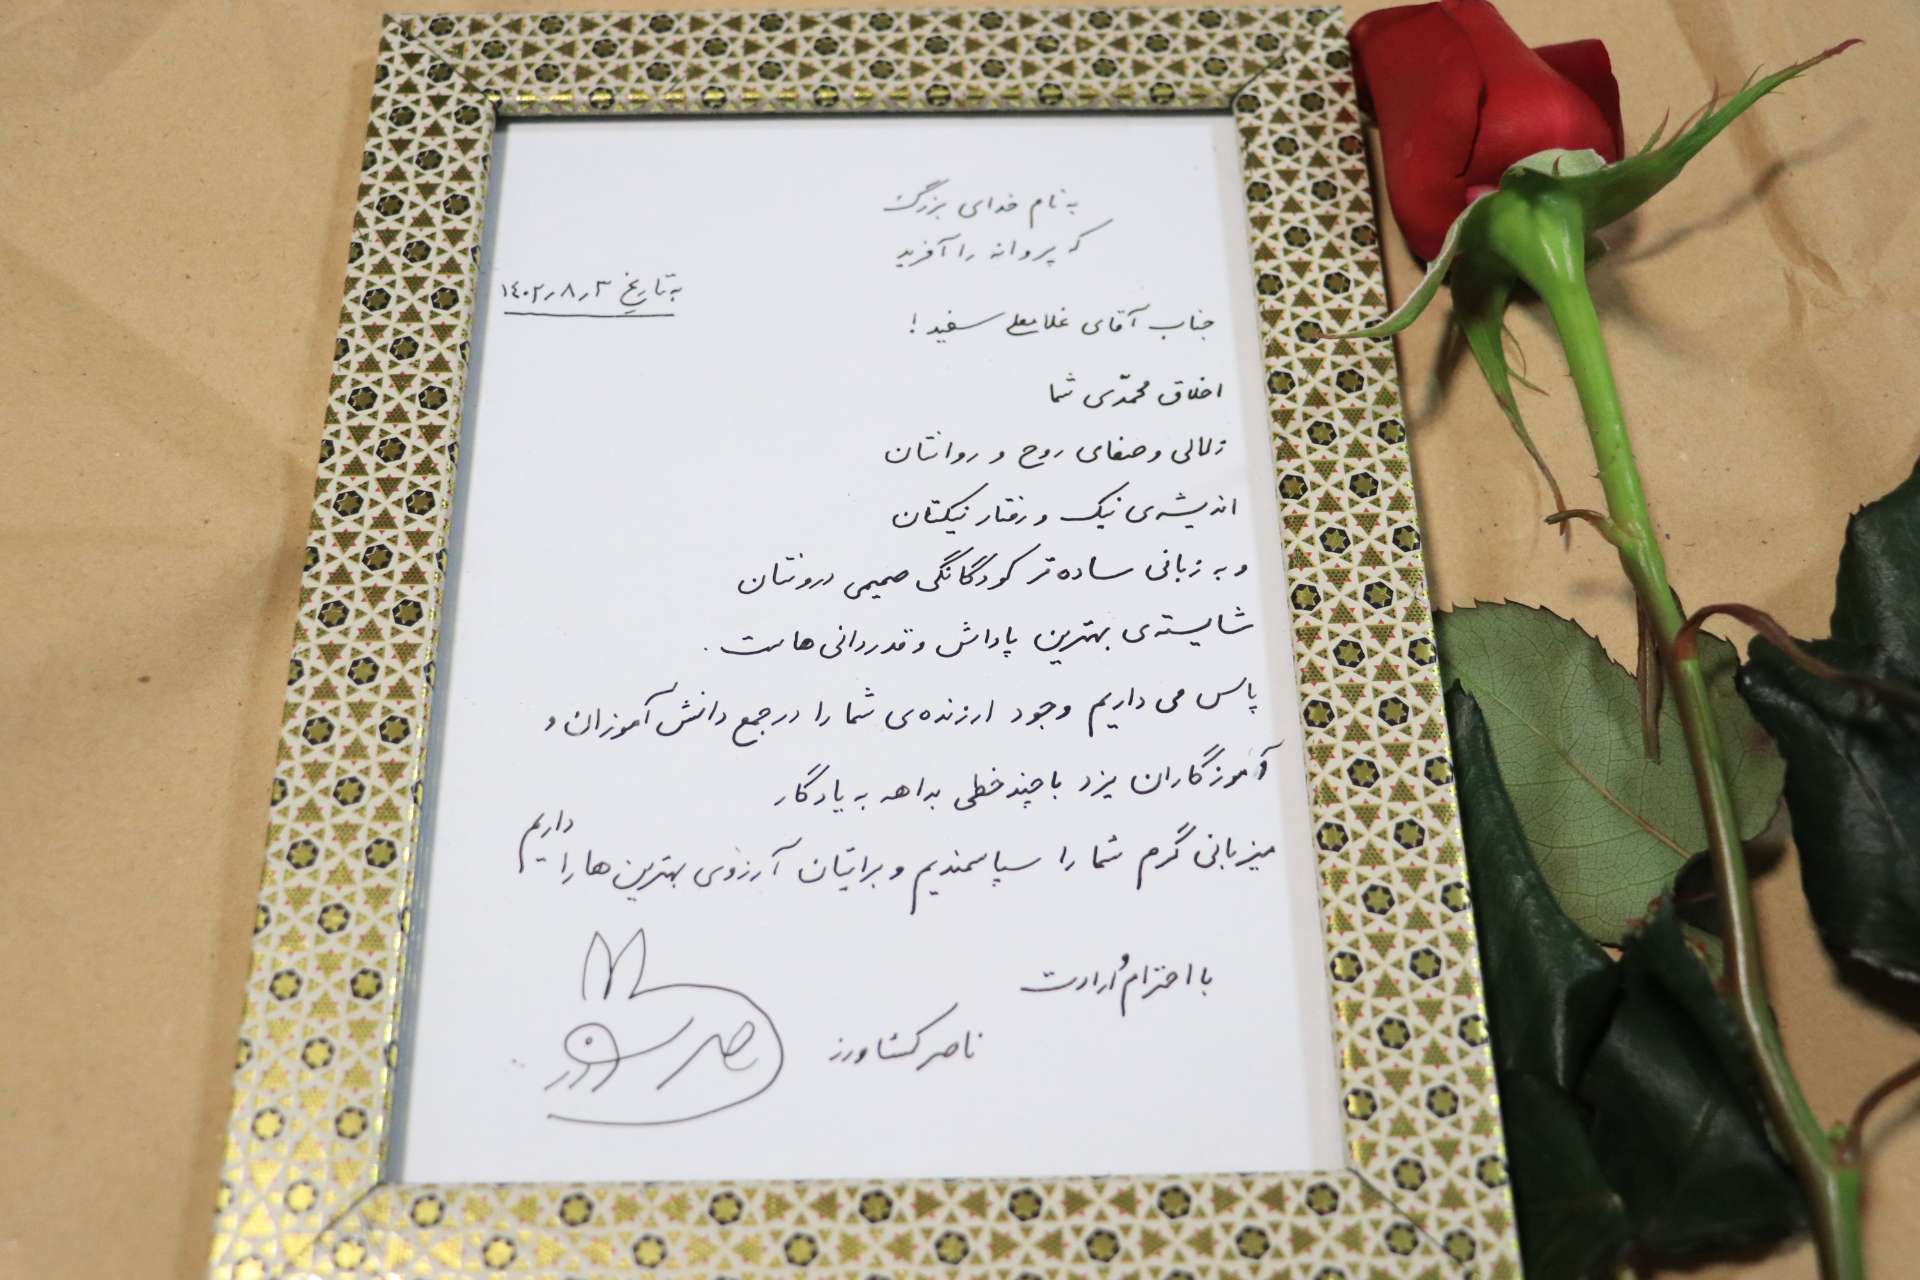 به نام خدای بزرگ
که پروانه را آفرید
به تاریخ ۱۴۰۲٫۸٫۳
جناب آقای غلامعلی سفید!
اخلاق محمّدی شما
زلالی و صفای روح و روانتان
اندیشه‌ی نیک و رفتار نیکتان
و به زبانی ساده‌تر کودکانگی صمیمی درونتان
شایسته‌ی بهترین پاداش و قدردانی‌هاست.
پاس می داریم وجود ارزنده‌ی شما را در جمع دانش آموزان و
آموزگاران یزد با چند خطی بداهه به یادگار
میزبانی گرم شما را سپاسمندیم و برایتان آرزوی بهترین ها را داریم
با احترام و ارادت
ناصر کشاورز